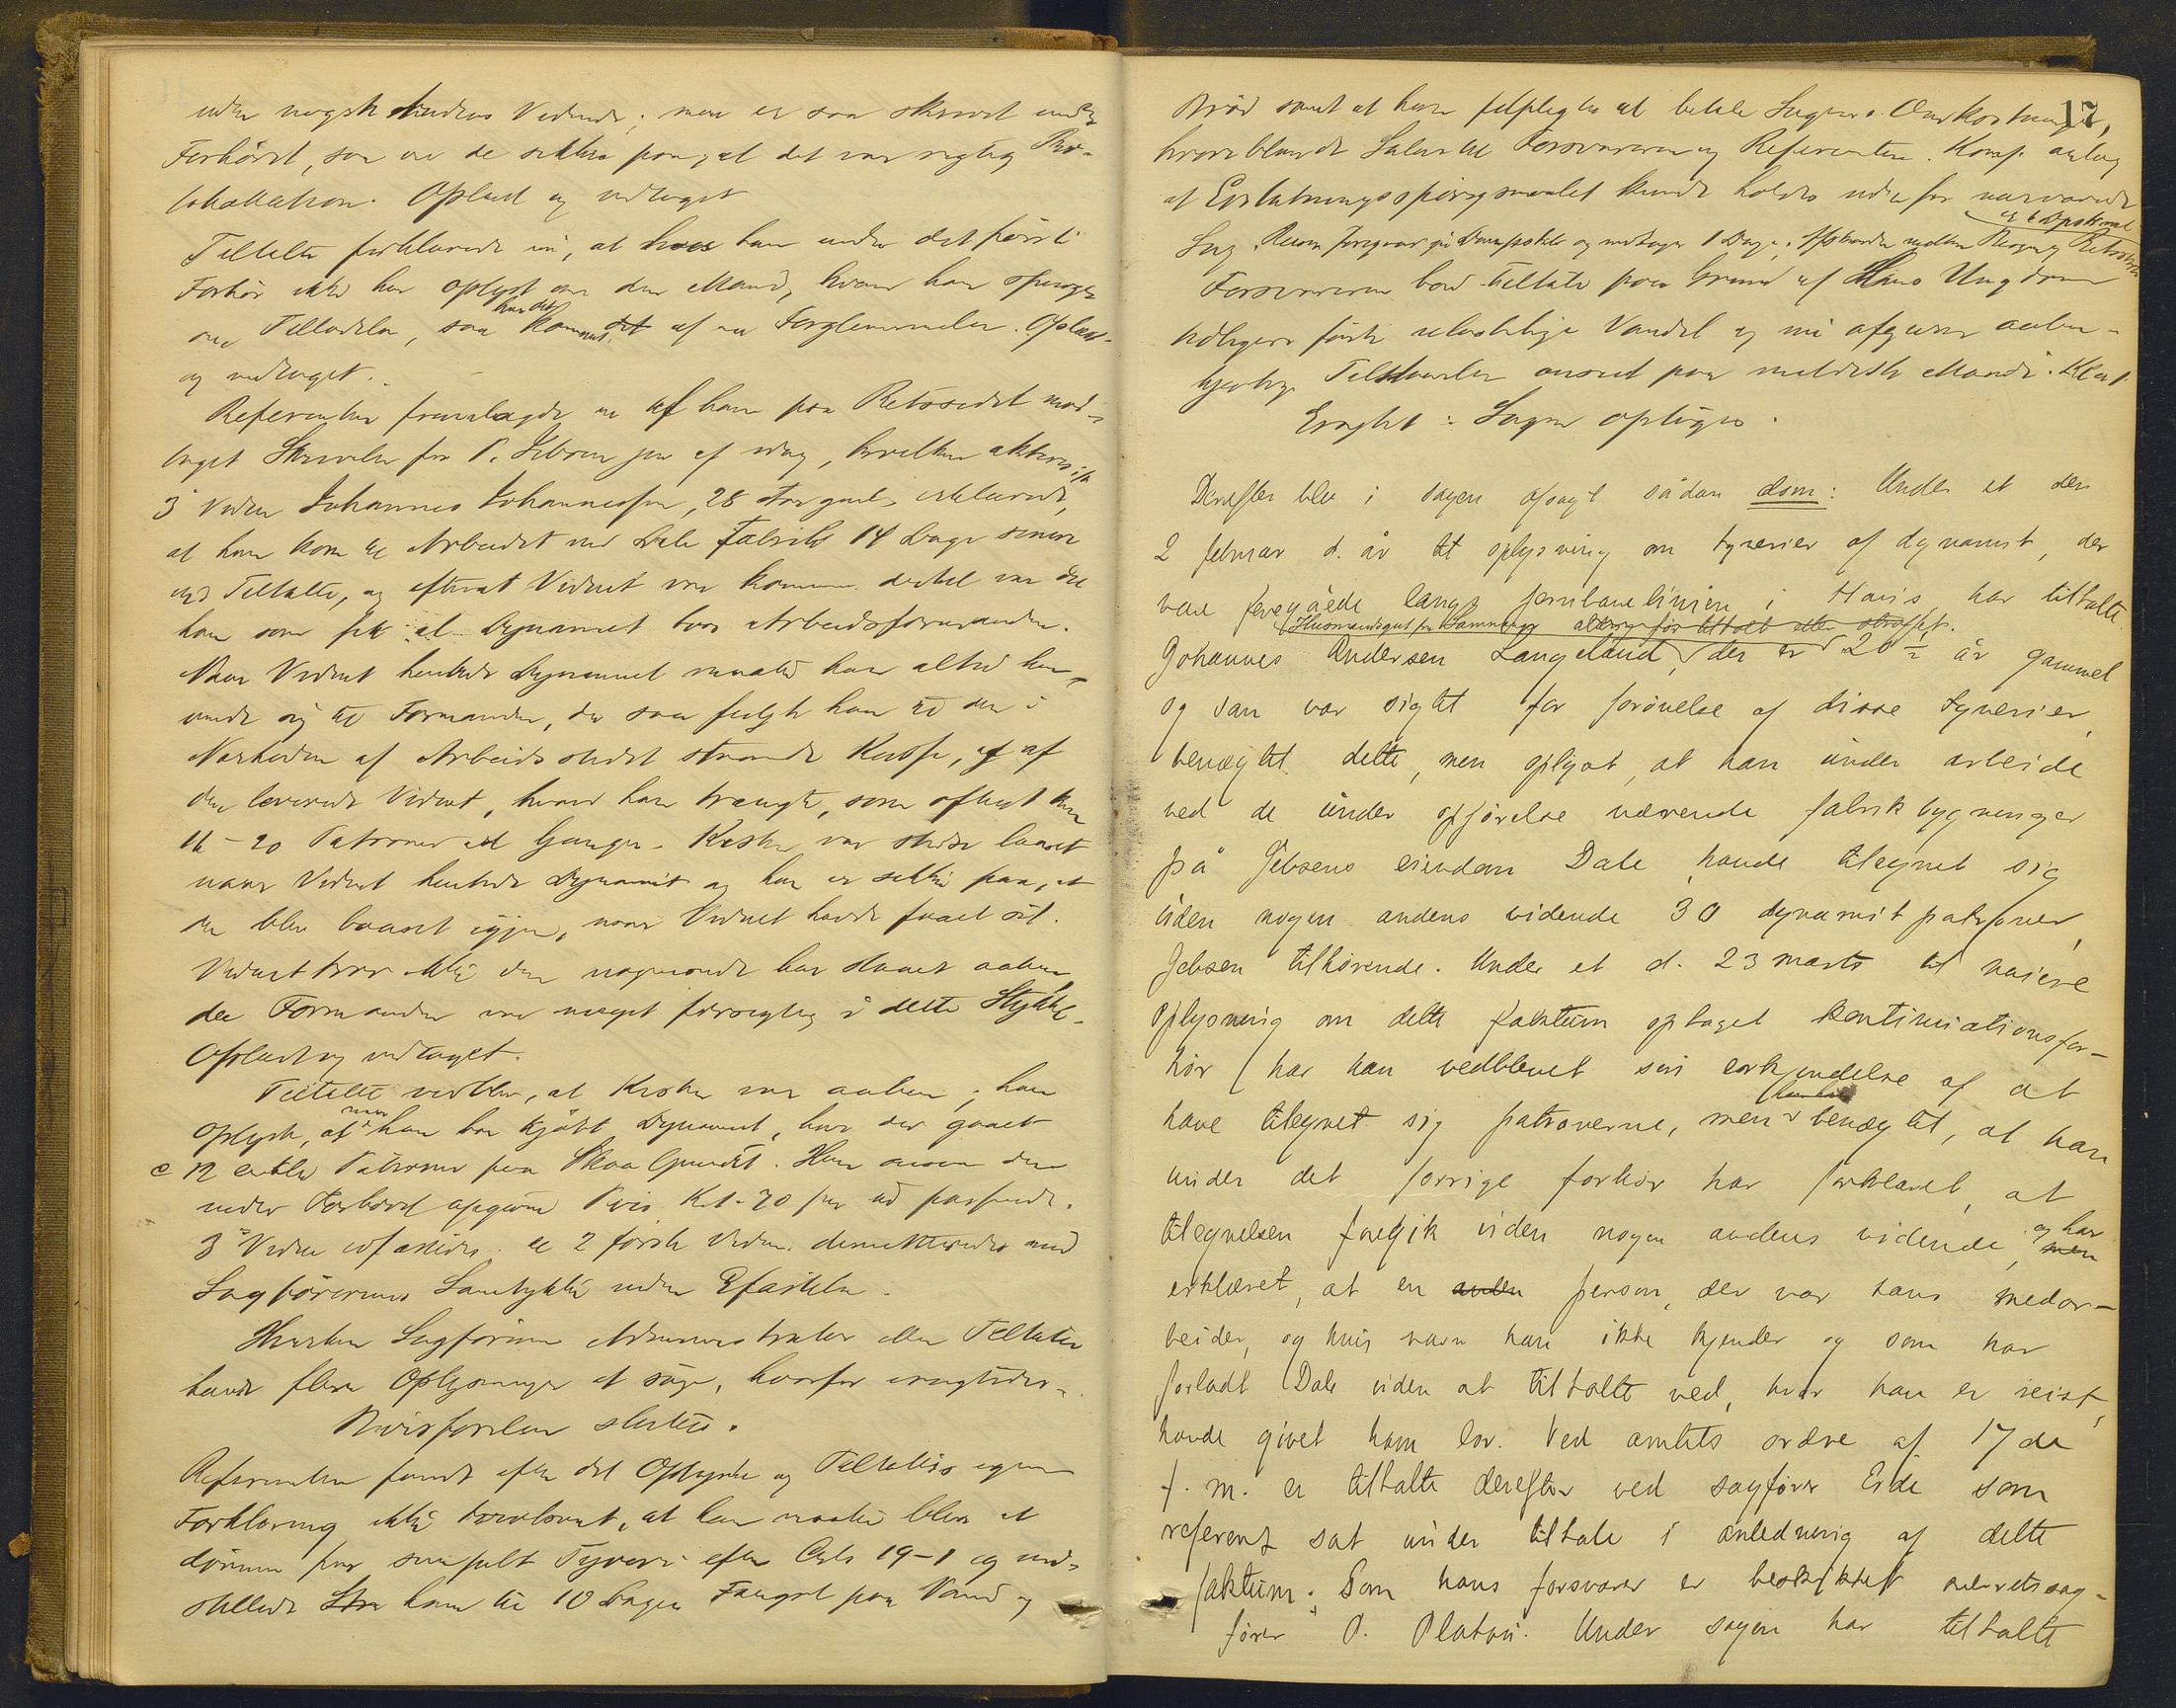 uden nogen Andens Vidende; men er saa skrevet under
Forhöret, saa er de sikker paa, at det var rigtig Pro-
tokollation. Oplæst og vedtaget
Tiltalte forklarede nu, at hvis han under det förste
Forhör ikke har oplyst om den Mand, hvem han spurgte
om Tilladelse, saa kommer det af en Forglemmelse. Oplæst
han det
og vedtaget.
Referenten fremlagde en af ham paa Retsstedet mod-
taget Skrivelse fra P. Jebsen jun af idag, hvilken akteres
3' Vidne Johannes Johannessen, 28 Aar gml. erklærede,
at han kom til Arbeidet ved Dale Fabrik 14 Dage senere
end Tiltalte, og efterat Vidnet var kommen dertil var det
ham som fik al Dynamit hos Arbeidsformanden.
Naar Vidnet hentede Dynamit maatte han altid hen-
vende sig til Formanden, der saa fulgte ham til den i
Nærheden af Arbeidsstedet staaende Kasse, og af
den leverede Vidnet, hvad han trængte, som oftest
16 - 20 Patroner ad Gangen. Kisten var stedse laaset
naar Vidnet hentede Dynamit og han er sikker paa, at
den blev laaset igjen, naar Vidnet havde faaet sit.
Vidnet tror ikke den nogensinde har staaet aaben,
da Formanden var meget forsigtig i dette Stykke.
Oplæst og vedtaget.
Tiltalte vedblev, at Kisten var aaben; han
oplyste, at naar han har kjöbt Dynamit, har der gaaet
c 12 enkle Patroner paa Skaalpundet. Han anser den
under Forhöret opgivne Pris Kr. 1.70 for at passende.
3' Vidne til 2 förste Vidner dimitteredes med
Sagförerens Samtykke uden Edfæstelse.
Hverken Sagförerne Administrator eller Tiltalte
havde flere Oplysninger at söge, hvorfor eragtedes
Bevisförelsen sluttes.
Referenten fandt efter det Oplyste og Tiltaltes egen
Forklaring ikke tvivlsomt, at han maatte blive at
dömme for simpelt Tyveri efter Crls 19-1 og ind-
stillede ham til 10 Dages Fængsel paa Vand og
17
Bröd samt at han tilpligtes at betale Sagens Omkostninger,
hvoriblandt Salær til Forsvareren og Referenten. Komp. antog
at Erstatningsspörgsmaalet kunde holdes udenfor nærværende
Sag. Reisen foregaar pr Dampskib og medtager 1 Dag
Forsvareren bad Tiltalte paa Grund af Hans Ungdom
tidligere förte ulastelige Vandel og nu afgivne aaben-
hjertige Tilstaaelse anseet paa mildeste Maade.
Eragtet: Sagen optages.
Derefter blev i sagen afsagt sådan dom: Under et den
2 februar d. år til oplysning om tyverier af dynamit, der
var foregåede langs jernbanelinjen i Haus har tiltalte
Husmandsgut fra Samnanger aldrig för tiltalt eller straffet.
Johannes Andersen Langeland, der er 20 ½ år gammel
og som var sigtet for forövelse af disse tyverier,
benægtet dette, men oplyst, at han under arbeide
ved de under opförelse værende fabrikbygninger
på Jebsens eiendom Dale havde tilegnet sig
uden nogen andens vidende 30 dynamitpatroner,
Jebsen tilhörende. Under et d. 23 marts til naiere
oplysning om dette faktum optaget kontinuationsfor-
hör har han vedblevet sin erkjendelse af at
have tilegnet sig patronerne, men benægtet, at han
under det forrige forhör har forklaret, at
tilegnelsen foregik uden nogen andens vidende, men
og har
erklæret, at en anden person, der var hans medar-
beider, og hvis navn han ikke kjender og som har
forladt Dale uden at tiltalte ved, hvor han er reist,
havde givet ham lov. Ved amtets ordre af 17 de
f. m. er tiltalte derefter ved sagförer Eide som
referent sat under tiltale i anledning af dette
faktum. Som hans forsvarer er beskikket overretssag-
förer O. Platou. Under sagen har tiltalte